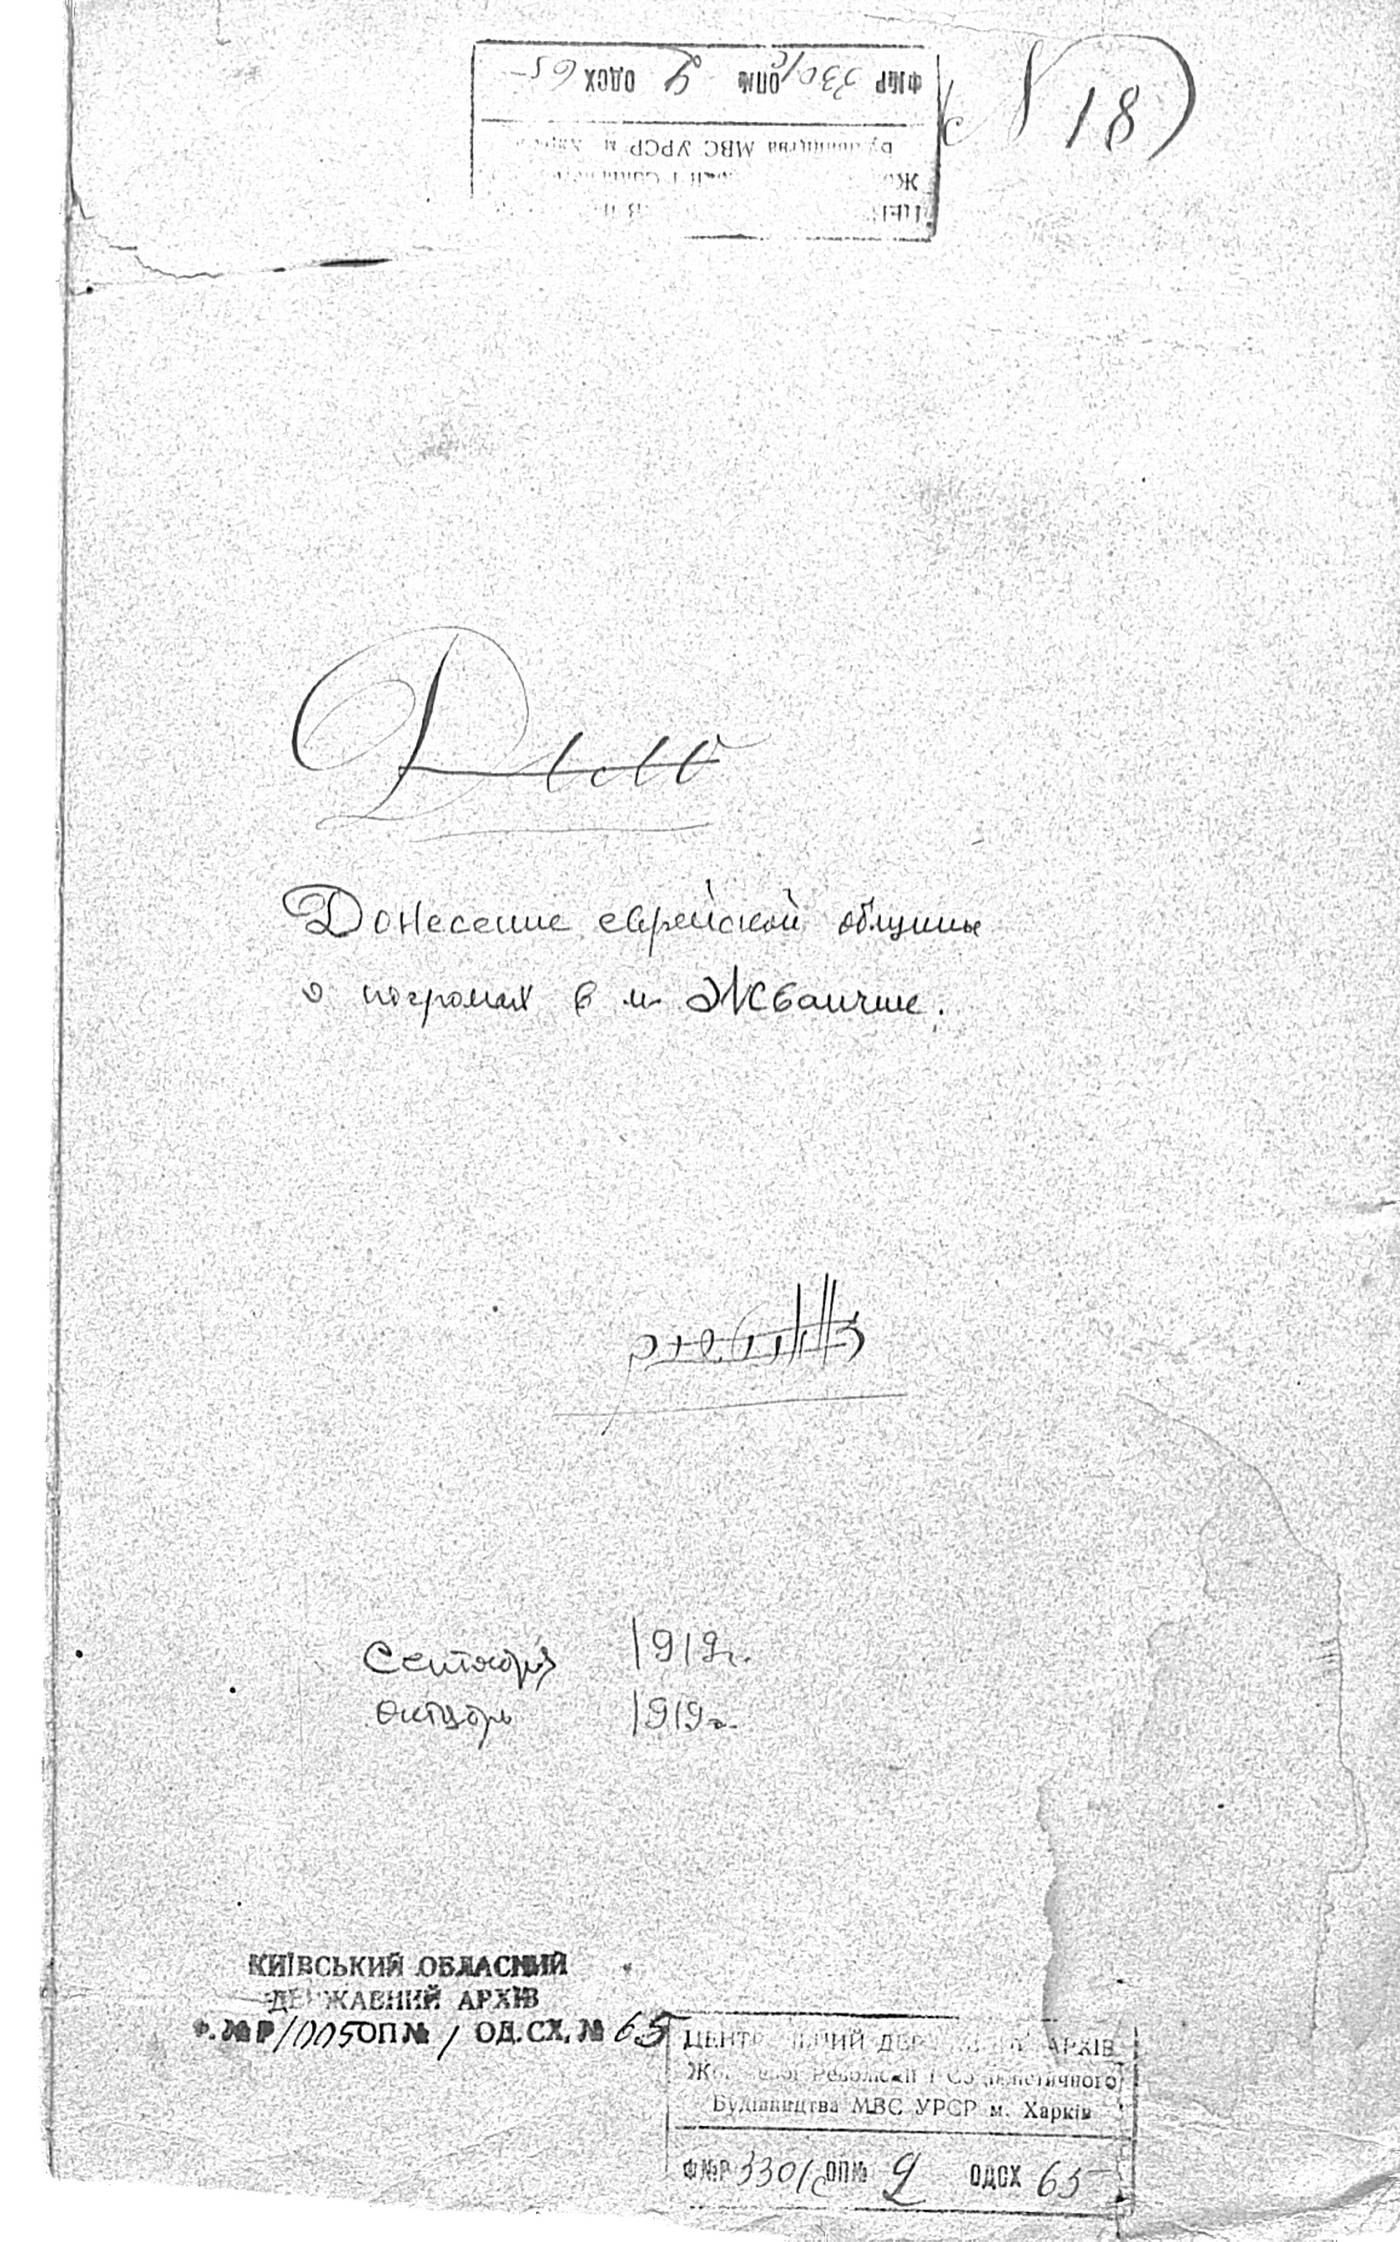 ФМР 3301/с ОПМ 2 ОДСХ 65
Будівництва МВС УРСР м. Харків
№ 18
Дело
Донесение еврейской общины
о погромах в м. Жванчие.
Сентябрь 1919г.
Октябрь 1919г.
КИЇВСЬКИЙ ОБЛАСНИЙ
ДЕРЖАВНИЙ АРХІВ
Ф. №Р 1005 ОП № 1 ОД. СХ. № 65
ЦЕНТРАЛЬНИЙ ДЕРЖАВНИЙ АРХІВ
Жовтневої Революції і Соціалістичного
Будівництва МВС УРСР м. Харків
Ф№Р 3301/с ОП№ 2 ОДСХ 65